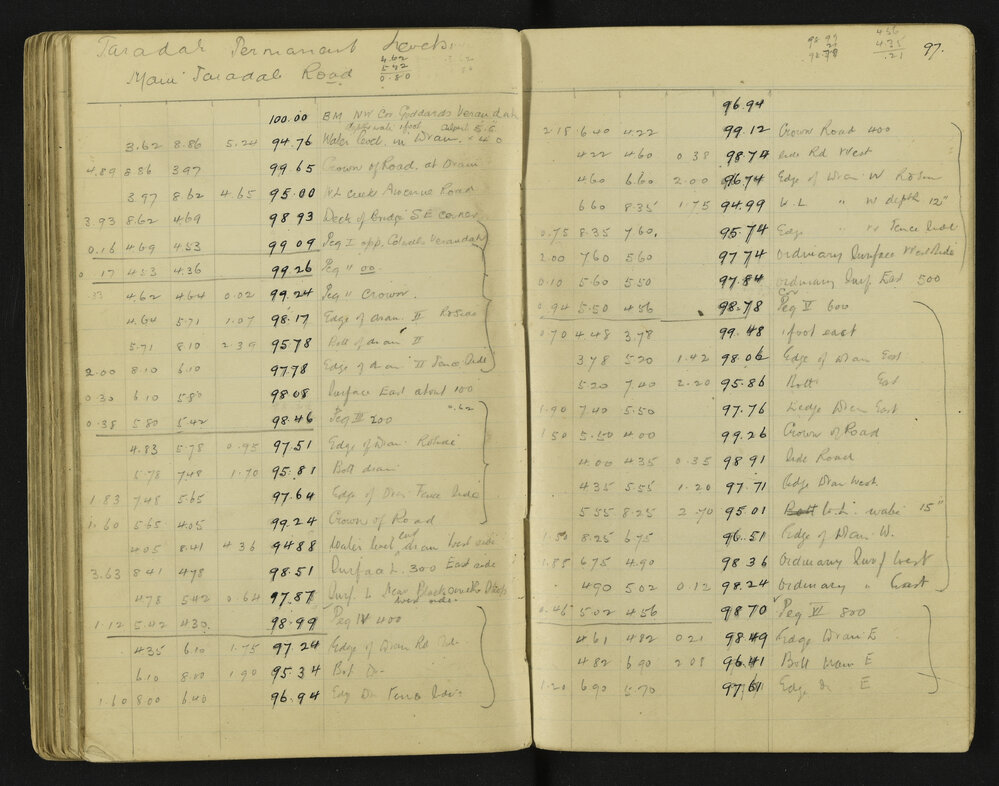 Taradale Permanent Levels
Main Taradale Road
4.62
0.80
100.00 BM NW Cor Goddards Verandah
3.62 8.86 5.24 94.76 Water level in Drain
4.89 8.86 3.97 99.65 Crown of Road at Drain
3.97 8.62 4.65 95.00 W.L Creek Avenue Road
3.93 8.62 4.69 98.93 Deck of Bridge S E corner
0.16 4.69 4.53 99.09 Peg I opp. Verandah
0.17 4.53 4.36 99.26 Peg " 00
4.62 4.64 0.02 99.24 Peg " Crown
4.64 5.71 1.07 98.17 Edge of drain II Rdside
5.71 8.10 2.39 95.78 Bott of drain II
2.00 8.10 6.10 97.78 Edge of dr. II Fence Side
0.30 6.10 5.80 98.08 Surface East about 100
0.38 5.80 5.42 98.46 Peg III 200
4.83 5.78 0.95 97.51 Edge of Drain Rdside
5.78 7.48 1.70 95.81 Bott drain
1.83 7.48 5.65 97.64 Edge of Drain Fence Side
1.60 5.65 4.05 99.24 Crown of Road
4.05 8.41 4.36 94.88 Water level drain West side
3.63 8.41 4.78 98.51 Surface L. 300 East side
4.78 5.42 0.64 97.87 Surf. L Near Blacksmiths
1.12 5.42 4.30 98.99 Peg IV 400
4.35 6.10 1.75 97.24 Edge of Drain Rd Sd.
6.10 8.00 1.90 95.34 Bot Dr
1.60 8.00 6.40 96.94 Edg Dr Fence Side
98.99
21
98.78
4.56
4.35
.21
97.
96.94
2.18 6.40 4.22 99.12 Crown Road 400
4.22 4.60 0.38 98.74 Side Rd West
4.60 6.60 2.00 96.74 Edge of Drain W Rdside
6.60 8.35 1.75 94.99 W.L " W depth 12"
0.75 8.35 7.60 95.74 Edge " W Fence Side
2.00 7.60 5.60 97.74 ordinary Surface West Side
0.10 5.60 5.50 97.84 ordinary Surf East 500
0.94 5.50 4.56 98.78 Peg V 600
0.70 4.48 3.78 99.48 1 foot east
3.78 5.20 1.42 98.06 Edge of Drain East
5.20 7.40 2.20 95.86 Bott East
1.90 7.40 5.50 97.76 Edge Drain East
1.50 5.50 4.00 99.26 Crown of Road
4.00 4.35 0.35 98.91 Side Road
4.35 5.55 1.20 97.71 Edge Drain West
5.55 8.25 2.70 95.01 Bott W.L. water 15"
1.50 8.25 6.75 96.51 Edge of Drain W.
1.85 6.75 4.90 98.36 Ordinary Surf West
4.90 5.02 0.12 98.24 Ordinary " East
0.46 5.02 4.56 98.70 Peg VI 800
4.61 4.82 0.21 98.49 Edge Drain E
4.82 6.90 2.08 96.41 Bott Drain E
1.20 6.90 5.70 97.61 Edge Dr E